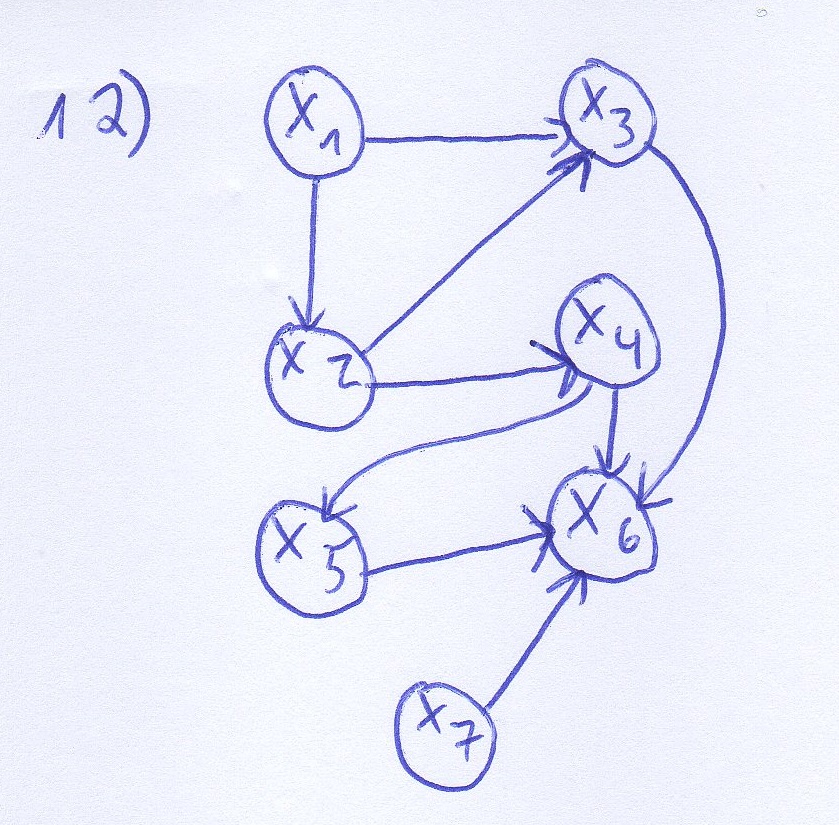 12)
X1
X3
X2
X4
X5
X6
X7